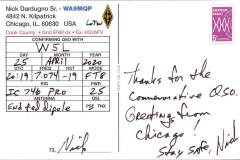 Nick Dardugno Sr. - WA9MQP
4842 N. Kilpatrick
Chicago, IL 60630 USA LoTW
Cook County - Grid EN61dx - Ex: HI5ZAFV
CONFIRMING QSO WITH
W5L
DAY MONTH YEAR
25 April 2020
20:19 7.074 -19 FT8
IC 746 PRO 25
End fed dipole
73, Nick
Thanks for the
Commemorative QSO.
Greetings from
Chicago!
Stay safe, Nick